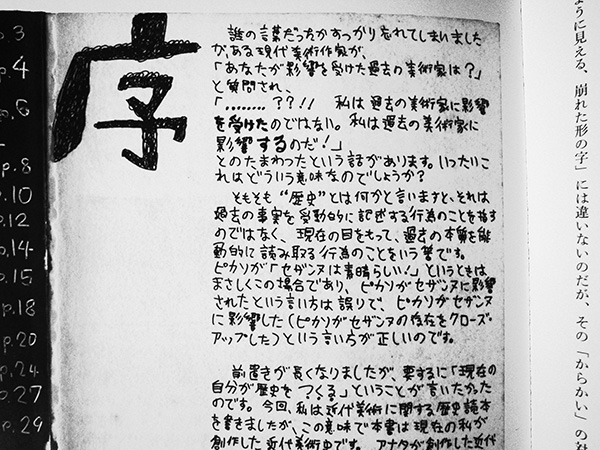 序
誰の言葉だったかすっかり忘れてしまいました
が、ある現代美術作家が、
「あなたが影響を受けた過去の美術家は?」
と質問され、
「........??!! 私は過去の美術家に影響
を受けたのではない。私は過去の美術家に
影響するのだ!」
とのたまわったという話があります。いったいこ
れはどういう意味なのでしょうか?
そもそも“歴史”とは何かと言いますと、それは
過去の事実を受動的に記述する行為のことを指す
のではなく、現在の目をもって、過去の本質を能
動的に読み取る行為のことをいう筈です。
ピカソが「セザンヌは素晴らしい!」というときは
まさしくこの場合であり、ピカソがセザンヌに影響
されたという言い方は誤りで、ピカソがセザンヌ
に影響した(ピカソがセザンヌの存在をクローズ・
アップした)という言い方が正しいのです。
前置きが長くなりましたが、要するに「現在の
自分が歴史をつくる」ということが言いたかった
のです。今回、私は近代美術に関する歴史読本
を書きましたが、この意味で本書は現在の私が
創作した近代美術史です。アナタが創作した近代
p.3
p.4
p.6
p.8
p.10
p.12
p.14
p.15
p.18
p.20
p.24
p.27
p.29
ように見える、崩れた形の字」には違いないのだが、その「からかい」の